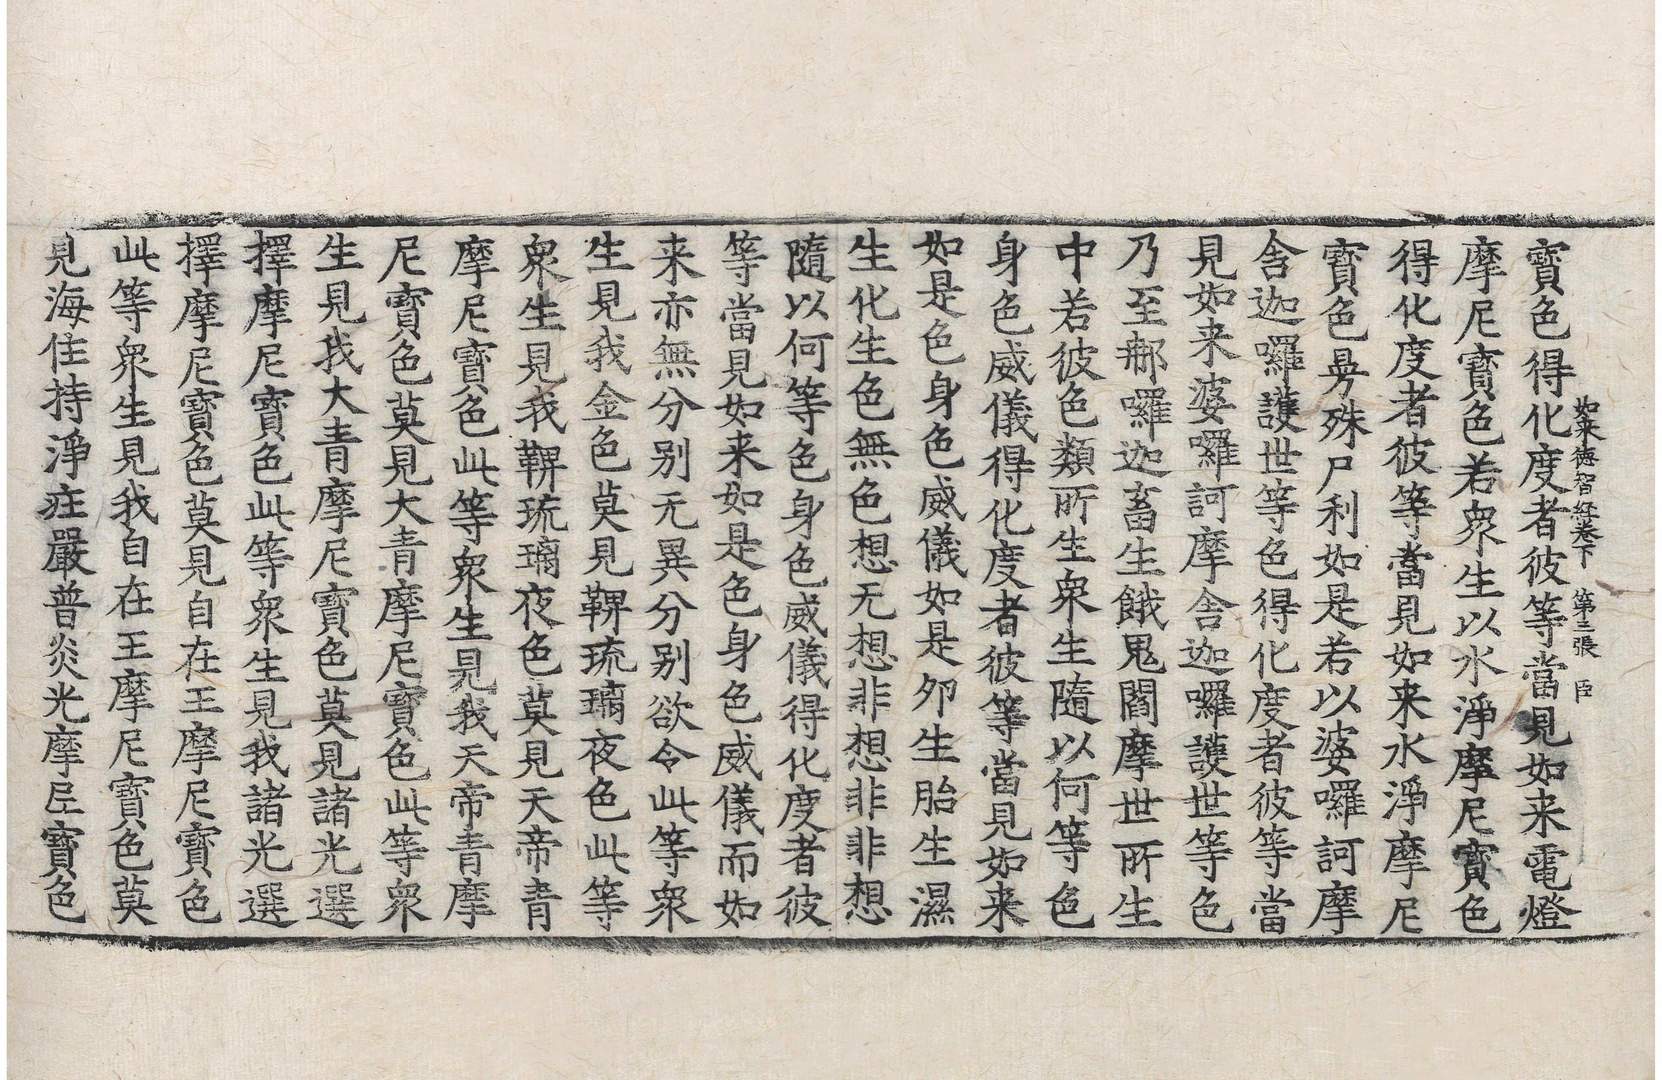 寶色得化度者彼等當見如来電燈
如来德智經卷下 第三張 臣
摩尼寶色若衆生以水淨摩尼寶色
得化度者彼等當見如来水淨摩尼
寶色㝵殊尸利如是若以婆囉訶摩
舍迦囉護世等色得化度者彼等當
見如来婆囉訶摩舍迦囉護世等色
乃至那囉迦畜生餓鬼閻摩世所生
中若彼色類所生衆生隨以何等色
身色威儀得化度者彼等當見如来
如是色身色威儀如是夘生胎生濕
生化生色無色想无想非想非非想
隨以何等色身色威儀得化度者彼
等當見如来如是色身色威儀而如
来亦無分别无異分别欲令此等衆
生見我金色莫見鞞琉璃夜色此等
衆生見我鞞琉璃夜色莫見天帝青
摩尼寶色此等衆生見我天帝青摩
尼寶色莫見大青摩尼寶色此等衆
生見我大青摩尼寶色莫見諸光選
擇摩尼寶色此等衆生見我諸光選
擇摩尼寶色莫見自在王摩尼寶色
此等衆生見我自在王摩尼寶色莫
見海住持淨㽵嚴普炎光摩尼寶色